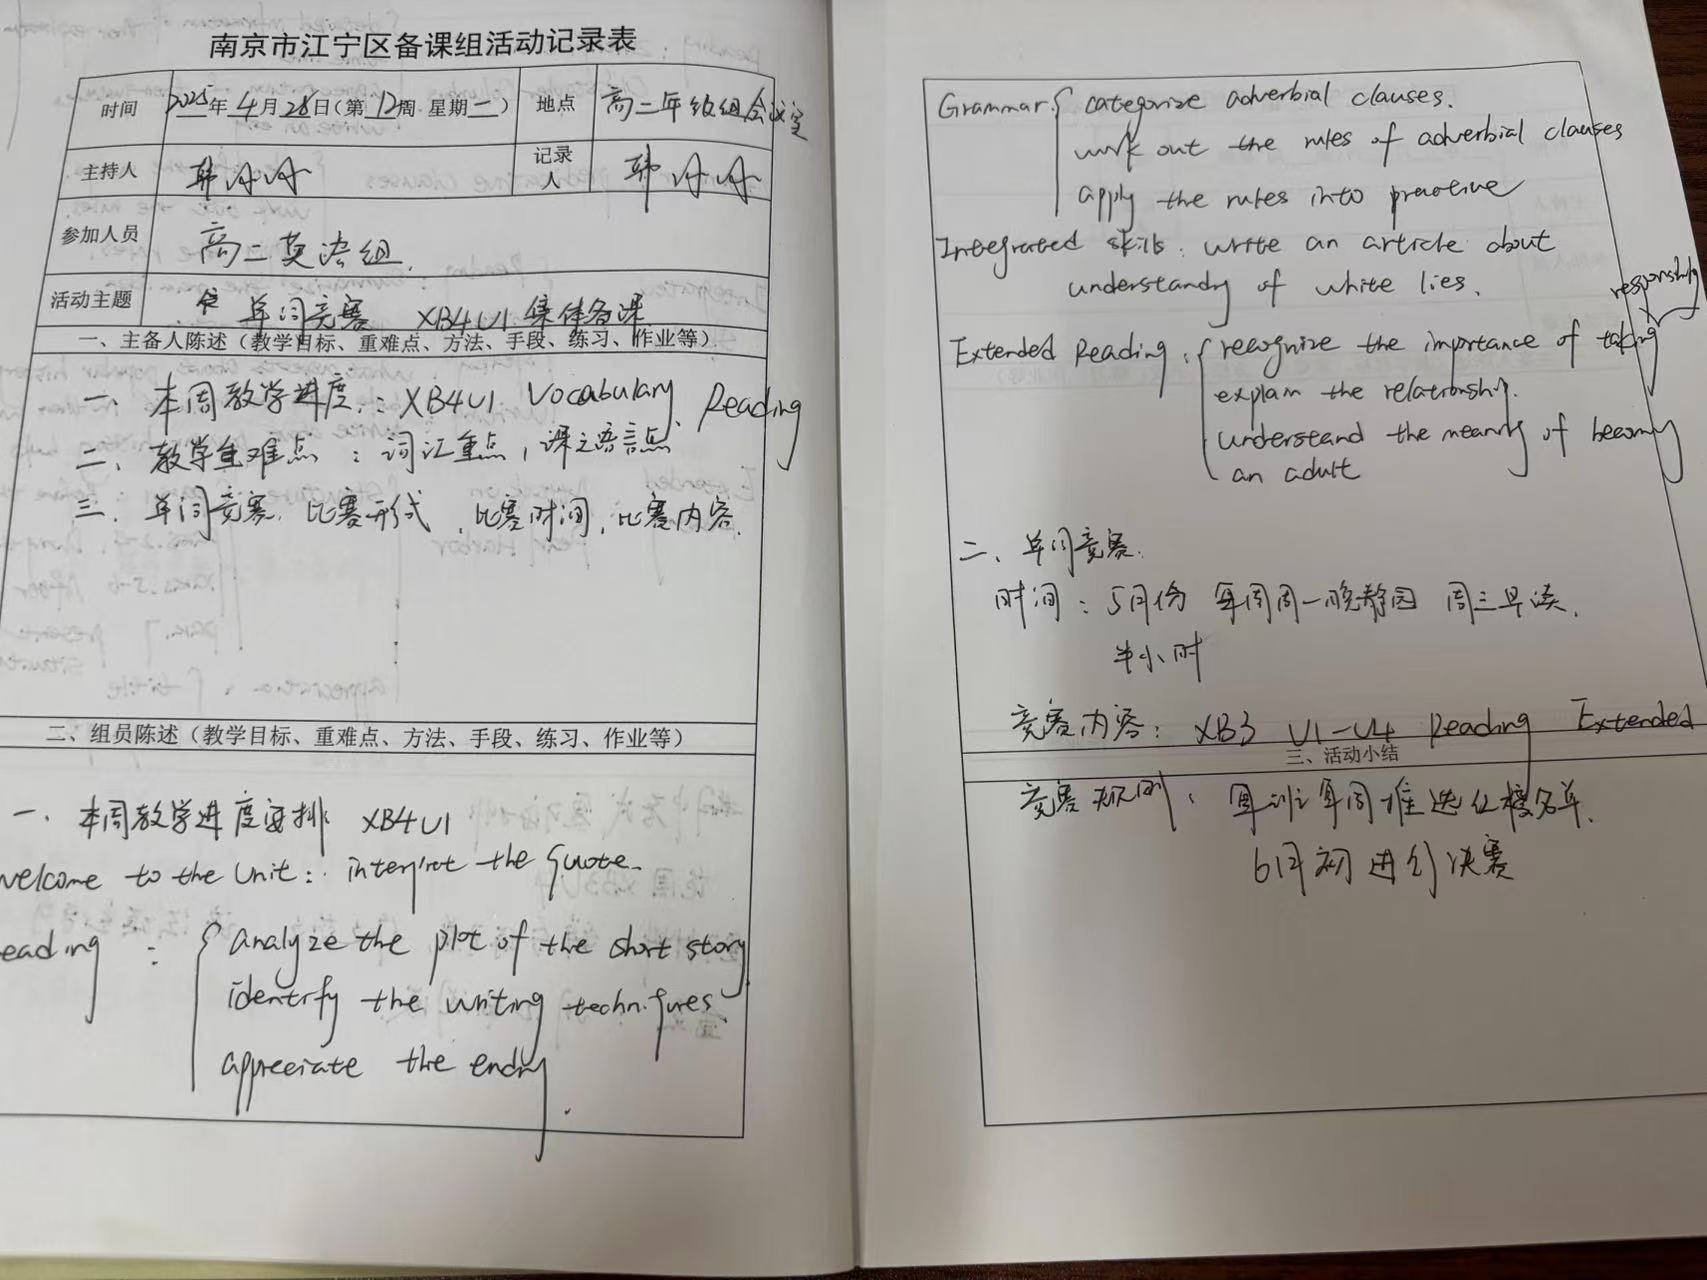 南京市江宁区备课组活动记录表
时间 2025年4月28日(第12周 星期一) 地点 高二年级组会议室
主持人 韩 记录人 韩
参加人员 高二英语组.
活动主题 单词竞赛 XB4U1 集体备课
一、主备人陈述（教学目标、重难点、方法、手段、练习、作业等）
一、本周教学进度: XB4U1 Vocabulary, Reading
二、教学重难点: 词汇重点, 课文语言点
三、单词竞赛. 比赛形式, 比赛时间, 比赛内容.
二、组员陈述（教学目标、重难点、方法、手段、练习、作业等）
一、本周教学进度安排: XB4U1
welcome to the Unit: interpret the quote.
eading: analyze the plot of the short story
identify the writing techniques.
appreciate the ending.
Grammar: categorize adverbial clauses.
work out the rules of adverbial clauses
apply the rules into practice
Integrated skills: write an article about
understanding of white lies.
Extended Reading: recognize the importance of taking responsibility
explain the relationship.
understand the meaning of becoming
an adult
二、单词竞赛.
时间: 5月份 每周周一晚静园 周三早读.
半小时
竞赛内容: XB3 U1-U4 Reading Extended
三、活动小结
竞赛规则: 每班每周推选 名单.
6月初进行决赛